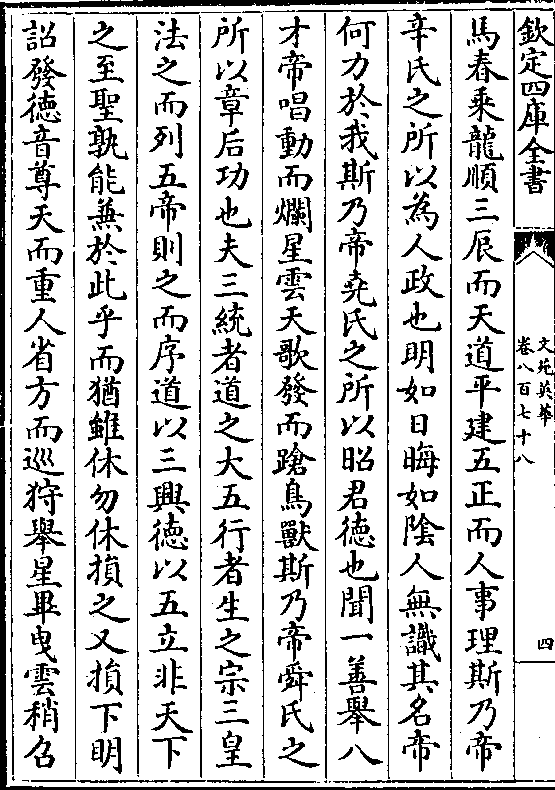 欽定四庫全書
文苑英華
卷八百七十八
四
馬春乘龍順三辰而天道平建五正而人事理斯乃帝
辛氏之所以為人政也明如日晦如陰人無識其名帝
何力於我斯乃帝堯氏之所以昭君德也聞一善舉八
才帝唱動而爛星雲天歌發而蹌鳥獸斯乃帝舜氏之
所以章后功也夫三統者道之大五行者生之宗三皇
法之而列五帝則之而序道以三興徳以五立非天下
之至聖孰能兼於此乎而猶雖休勿休損之又損下明
詔發徳音尊天而重人省方而巡狩舉星畢曳雲稍召